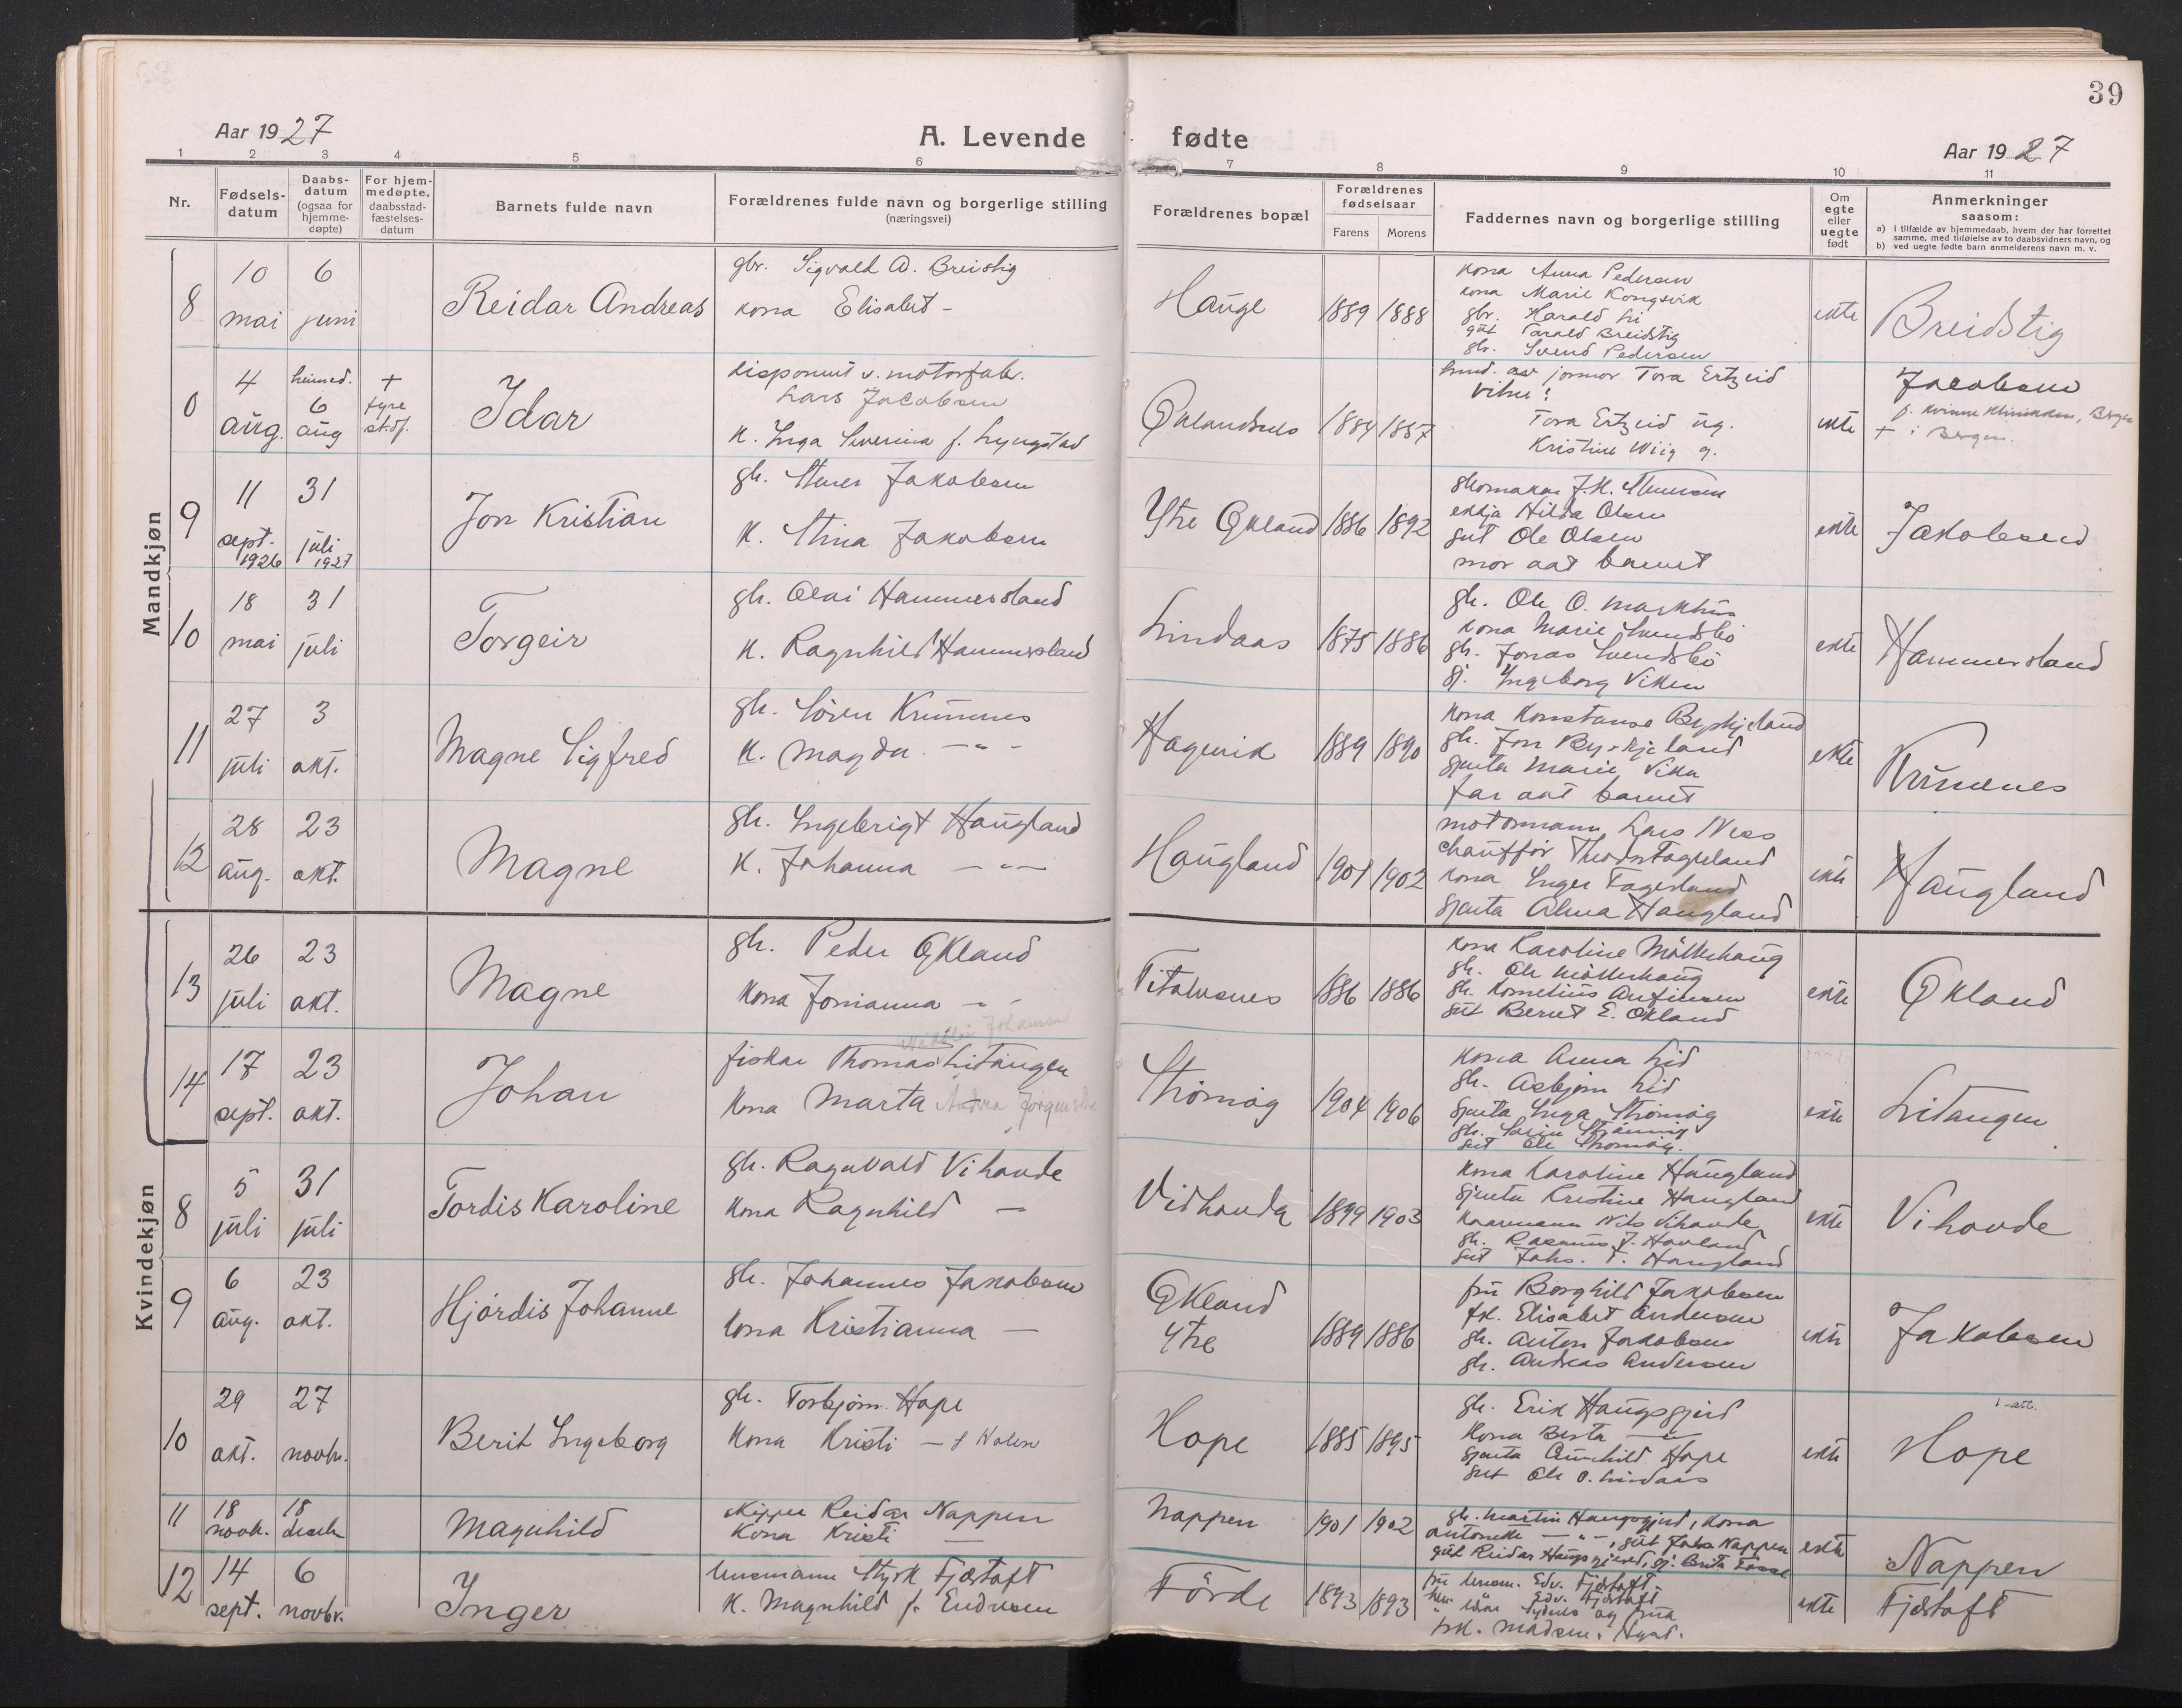 39
Aar 1927
A. Levende fødte
Aar 1927
1 2 3 4 5 6 7 8 9 10 11
Nr.
Fødsels-
datum
Daabs-
datum
(ogsaa for
hjemme-
døpte)
For hjem-
medøpte,
daabsstad-
fæstelses-
datum
Barnets fulde navn
Forældrenes fulde navn og borgerlige stilling
(næringsvei)
Forældrenes bopæl
Forældrenes
fødselsaar
Farens Morens
Faddernes navn og borgerlige stilling
Om
egte
eller
uegte
født
Anmerkninger
saasom:
a) i tilfælde av hjemmedaab, hvem der har forrettet
samme, med tilføielse av to daabsvidners navn, og
b) ved uegte fødte barn anmelderens navn m. v.
Mandkjøn
8
10
mai
6
juni
Reidar Andreas
gbr. Sigvald A. Breistig
kona Elisabet -
Hauge
1889 1888
kona Anna Pedersen
kona Marie Kongsvik
gbr. Harald Li
gut Harald Breidstig
gbr. Svend Pedersen
ekte
Breidstig
0
4
aug.
heimed.
6
aug
+
fyre
st.df.
Idar
disponent v. motorfabr.
Lars Jacobsen
K. Inga Severina f. Lyngstad
1884 1887
hmd. av jormor Tora Ertzeid
Vitne:
Tora Ertzeid ug.
Kristine Wiig g.
ekte
Jacobsen
f. Kvinne Klinikken, Bergen
+ i Bergen.
9
11
sept.
1926
31
juli
1927
Jon Kristian
gbr. Jakobsen
K. Stina Jakobsen
Ytre Økland
1886 1892
skomakar J.K.
enkja Hilda Olsen
gut Ole Olsen
mor aat barnet
ekte
Jakobsen
10
18
mai
31
juli
Torgeir
gbr. Olai Hammersland
K. Ragnhild Hammersland
Lindaas
1875 1886
gbr. Ole O. Markhus
kona Marie Svendsbö
gbr. Jonas Svendsbö
gj. Ingeborg Viken
ekte
Hammersland
11
27
juli
3
okt.
Magne Sigfred
gbr. Sören Krumnes
K. Magda - " -
Hagevik
1889 1890
kona Konstanse Byrkjeland
gbr. Jon Byrkjeland
gjenta Marie Vika
far aat barnet
ekte
Krumnes
12
28
aug.
23
okt.
Magne
gbr. Ingebrigt Haugland
K. Johanna - " -
Haugland
1901 1902
motormann Lars Ness
chaufför Theodor Fagerland
kona Inger Fagerland
gjenta Alma Haugland
ekte
Haugland
13
26
juli
23
okt.
Magne
gbr. Peder Økland
kona Jonianna - " -
1886 1886
kona Karoline Möllerhaug
gbr. Ole Möllerhaug
gbr. Kornelius Anfinsen
gut Bernt E. Økland
ekte
Økland
14
17
sept.
23
okt.
Johan
Nikolai Johansen
fiskar Thomas Litangen
kona Marta Andrea Jørgensdtr.
Strömöy
1904 1906
kona Anna Lid
gbr. Asbjörn Lid
gjenta Inga Strömöy
gbr. Strömöy
gut Ole Strömöy.
ekte
Litangen
Kvindekjøn
8
5
juli
31
juli
Tordis Karoline
gbr. Ragnvald Vihovde
kona Ragnhild -
Vidhovda
1899 1903
kona Karoline Haugland
gjenta Kristine Haugland
kaarmann Nils Vihovde
gbr. Rasmus J. Hovland
gut Johs. T. Haugland
ekte
Vihovde
9
6
aug.
23
okt.
Hjördis Johanne
gbr. Johannes Jakobsen
kona Kristianna -
Økland
Ytre
1889 1886
fru Borghild Jakobsen
frk. Elisabet Andersen
gbr. Anton Jakobsen
gbr. Andreas Andersen
ekte
Jakobsen
10
29
okt.
27
novbr.
Berit Ingeborg
gbr. Torbjörn Hope
kona Kristi - f Holen
Hope
1885 1895
gbr. Erik Haugsgjerd
kona Berta - " -
gjenta Gunhild Hope
gut Ole O. Lindaas
ekte
1 att.
Hope
11
18
novb.
18
desbr
Magnhild
skipper Reidar Nappen
kona Kristi -
Nappen
1901 1902
gbr. Martin Haugsgjerd, kona
Antonette - " -, gut Johs Nappen
gut Reidar Haugsgjerd, gj. Berta Fosse
ekte
Nappen
12
14
sept.
6
novbr.
Inger
lensmann Styrk Fjærtoft
K. Magnhild f. Endresen
Förde
1893 1893
fru lensm. Edv. Fjærtoft.
hr. " Edv. Fjærtoft
og frua
frk. Madsen.
ekte
Fjærtoft